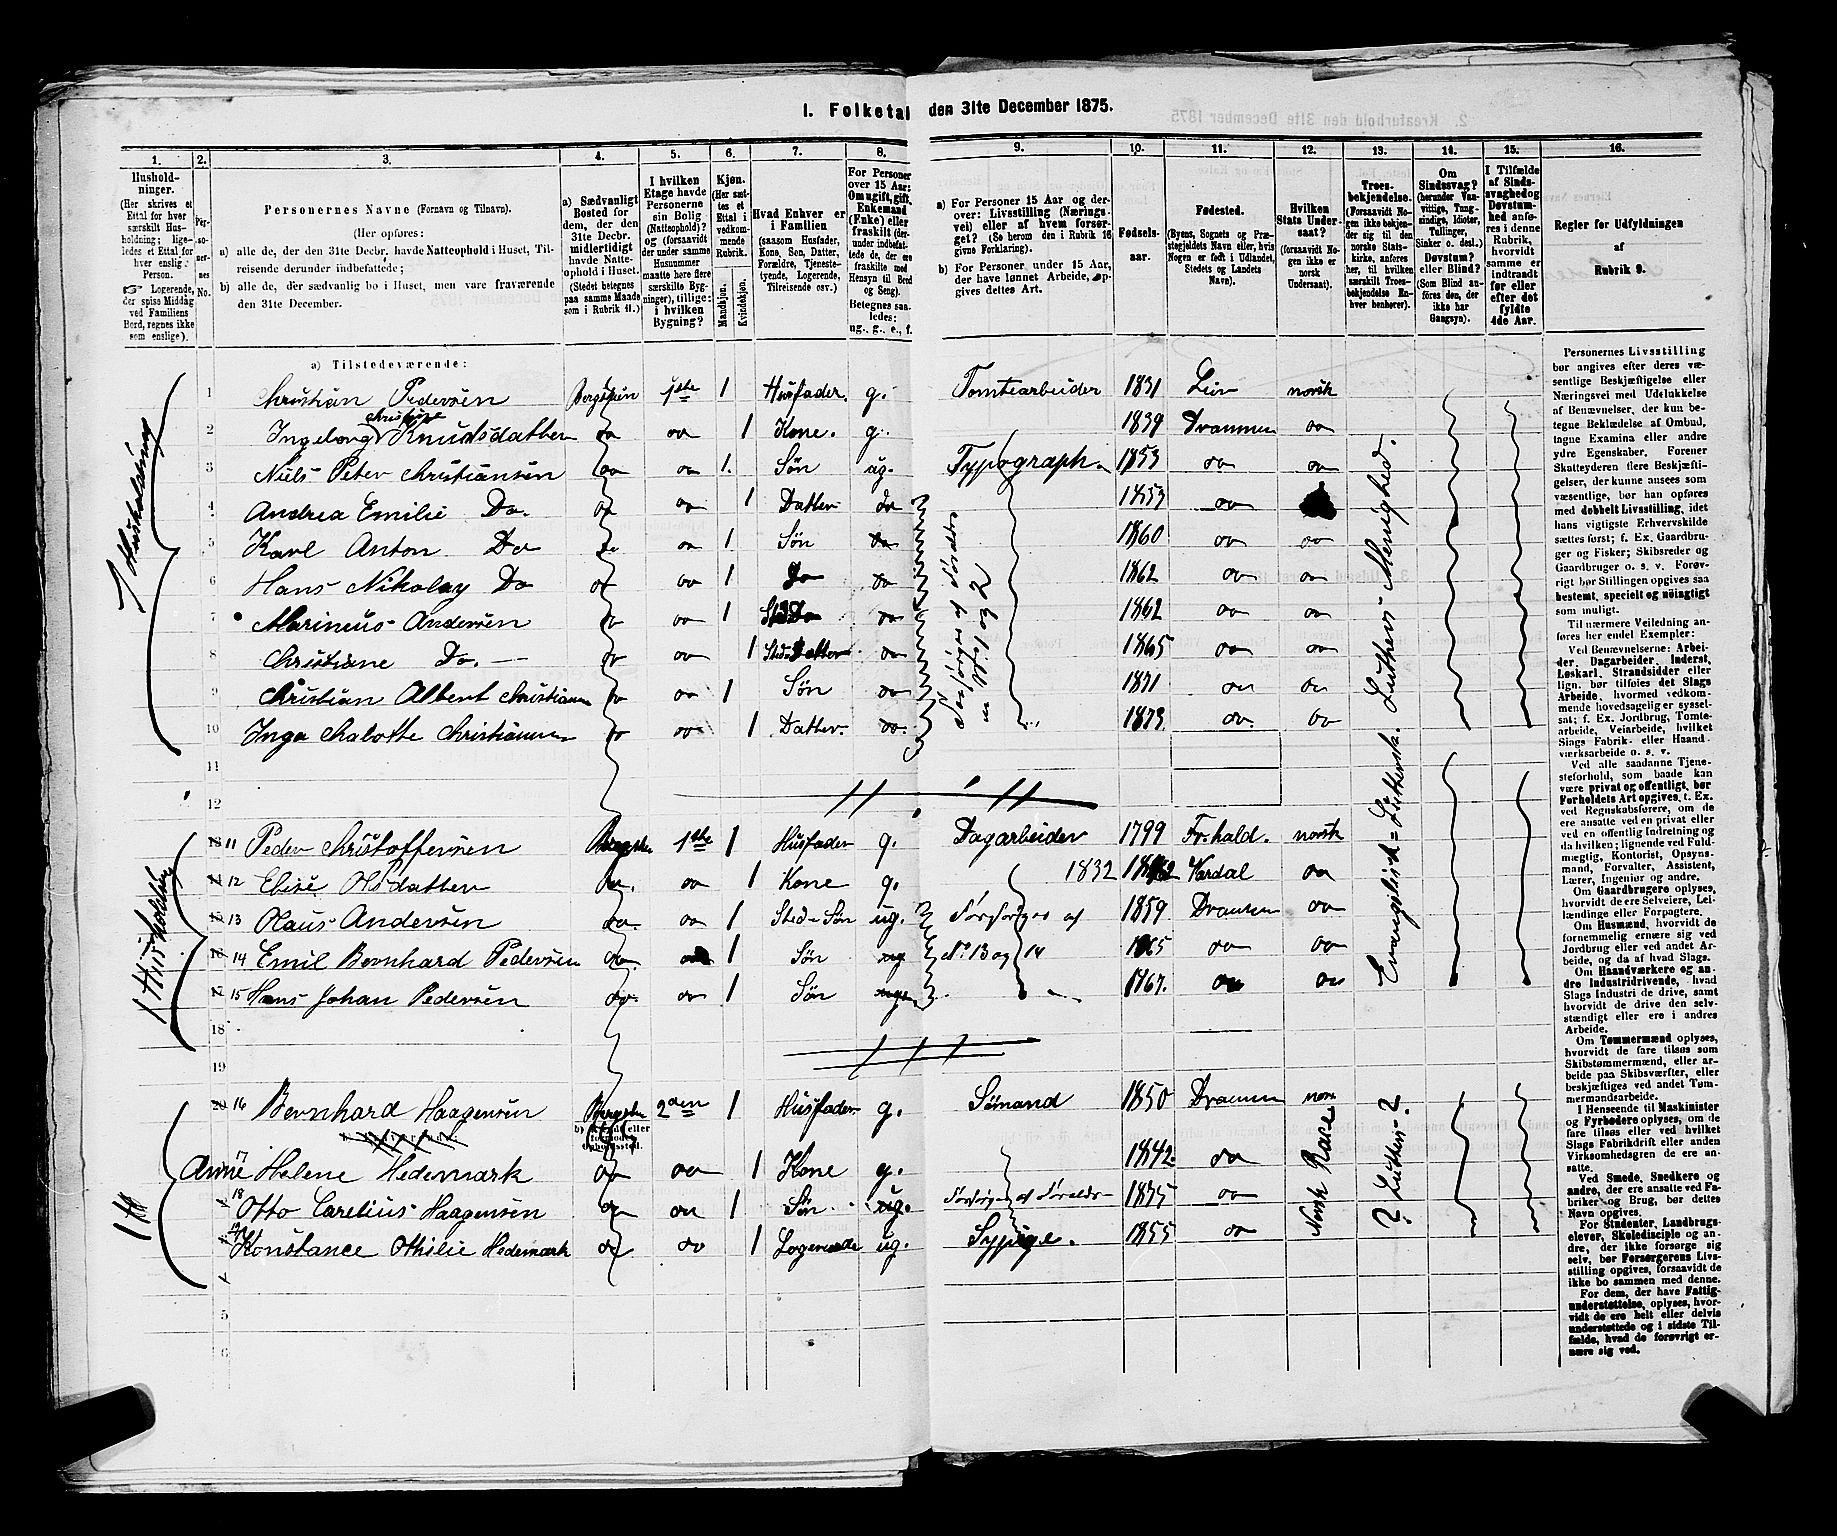 I. Folketal den 31te December 1875.
1. 2. 3. 4. 5. 6. 7. 8. 9. 10. 11. 12. 13. 14. 15. 16.
Husholdninger. (Her skrives et Ettal for hver særskilt Husholdning; ligeledes et Ettal for hver enslig Person. ☞ Logerende, der spise Middag ved Familiens Bord, regnes ikke som enslige).
Personernes No.
Personernes Navne (Fornavn og Tilnavn).
(Her opføres:
a) alle de, der den 31te Decbr. havde Natteophold i Huset, Tilreisende derunder indbefattede;
b) alle de, der sædvanlig bo i Huset, men vare fraværende den 31te December.
a) Sædvanligt Bosted for dem, der den 31te Decbr. midlertidigt havde Natteophold i Huset. (Stedet betegnes paa samme Maade som i Rubrik 11.)
I hvilken Etage havde Personerne sin Bolig (Natteophold)? og (forsaavidt der under samme Husnummer maatte høre flere særskilte Bygninger), tillige: i hvilken Bygning?
Kjøn. (Her sættes et Ettal i vedkommende Rubrik.
Mandkjøn. Kvindekjøn.
Hvad Enhver er i Familien (saasom Husfader, Kone, Søn, Datter, Forældre, Tjenestetyende, Logerende, Tilreisende osv.)
For Personer over 15 Aar: Om ugift, gift, Enkemand (Enke) eller fraskilt (derunder indbefattede de, der ere fraskilte med Hensyn til Bord og Seng). Betegnes saaledes: ug., g., e., f.
a) For Personer 15 Aar og derover: Livsstilling (Næringsvei) eller af hvem forsørget? (Se herom den i Rubrik 16 givne Forklaring).
b) For Personer under 15 Aar, der have lønnet Arbeide, opgives dettes Art.
Fødselsaar.
Fødested. (Byens, Sognets og Præstegjeldets Navn eller, hvis Nogen er født i Udlandet, Stedets og Landets Navn).
Hvilken Stats Undersaat? (forsaavidt Nogen ikke er norsk Undersaat).
Troesbekjendelse. (Forsaavidt Nogen ikke bekjender sig til den norske Statskirke, anføres her, til hvilken særskilt Troesbekjendelse Enhver henhører).
Om Sindssvag? (herunder Vanvittige, Tungsindige, Idioter, Tullinger, Sinker o. desl.) Døvstum? eller Blind? (Som Blind anføres den, der ikke har Gangsyn).
I Tilfælde af Sindssvaghed og Døvstumhed anføres i denne Rubrik, hvorvidt samme er indtraadt før eller efter det fyldte 4de Aar.
Regler for Udfyldningen af Rubrik 9.
a) Tilstedeværende:
1 Husholdning
1 Christian Pedersen Bergstien 1ste 1 Husfader. g. Tomtearbeider 1831 Lier norsk
Christine
2 Ingeborg Knudsdatter do do 1 Kone. g. 1839 Drammen do
3 Niels Peter Christiansen do do 1. Søn ug. Typograph. 1853 do do
4 Andrea Emilie Do. do do 1 Datter do 1853 do
5 Karl Anton Do do do 1 Søn do 1860 do do
6 Hans Nikolay Do do do 1 Do do 1862 do do
7 Marineus Andersen do do 1 Sted do 1862 do do
8 Christiane Do. do do 1 Sted-Datter do 1865 do do
9 Christian Albert Christiansen do do 1 Søn do 1831 do do
10 Inga Malotte Christiansen do do 1 Datter. do. 1873. do. do
Forsørges af Forældre
No. 1 og 2
Luthers Menighed.
11
12
1 Husholdning
13 11 Peder Christoffersen Bergsti. 1ste 1 Husfader g. Dagarbeider 1799 Fr.hald. norsk
14 12 Elise Olsdatter do. do 1 Kone g. 1832 Vardal do
15 13 Olaus Andersen do. do 1 Sted-Søn ug. Forsørges af 1859 Dramen do
16 14 Emil Bernhard Pedersen do. do 1 Søn ug No 13 og 14 1865 do do
17 15 Hans Johan Pedersen do. do 1 Søn ug. 1867. do do
Evangelisk=Luthersk.
18
19
1 H
20 16 Bernhard Haagensen Bergstien 2den 1 Husfader g. Sømand 1850 Dramen norsk
17 Anne Helene Hedemark do do 1 Kone g. 1842. do
18 Otto Carelius Haagensen do do 1 Søn. ug. Forsørges af Forældr 1875 do
19 Konstance Othilie Hedemark do do 1 Logerende ug. Sypige. 1855 do
Norsk
? Luthers ?
5
6
Personernes Livsstilling bør angives efter deres væsentlige Beskjæftigelse eller Næringsvei med Udelukkelse af Benævnelser, der kun betegne Beklædelse af Ombud, tagne Examina eller andre ydre Egenskaber. Forener Skatteyderen flere Beskjæftigelser, der kunne ansees som væsentlige, bør han opføres med dobbelt Livsstilling, idet hans vigtigste Erhvervskilde sættes først; f. Ex. Gaardbruger og Fisker; Skibsreder og Gaardbruger o. s. v. Forøvrigt bør Stillingen opgives saa bestemt, specielt og nøiagtigt som muligt.
Til nærmere Veiledning anføres her endel Exempler:
Ved Benævnelserne: Arbeider, Dagarbeider, Inderst, Løskarl, Strandsidder eller lign. bør tilføies det Slags Arbeide, hvormed vedkommende hovedsagelig er sysselsat; f. Ex. Jordbrug, Tomtearbeide, Veiarbeide, hvilket Slags Fabrik- eller Haandværksarbeide o. s. v.
Ved alle saadanne Tjenesteforhold, som baade kan være privat og offentligt, bør Forholdets Art opgives, t. Ex. ved Regnskabsførere, om de ere ansatte ved en privat eller ved en offentlig Indretning og da hvilken; lignende ved Fuldmægtig, Kontorist, Opsynsmand, Forvalter, Assistent, Lærer, Ingeniør og andre.
Om Gaardbrugere oplyses, hvorvidt de ere Selveiere, Leilændinge eller Forpagtere.
Om Husmænd, hvorvidt de fornemmelig ernære sig ved Jordbrug eller ved andet Arbeide, og da af hvad Slags.
Om Haandværkere og andre Industridrivende, hvad Slags Industri de drive, samt hvorvidt de drive den selvstændigt eller ere i andres Arbeide.
Om Tømmermænd oplyses, hvorvidt de fare tilsøs som Skibstømmermænd, eller arbeide paa Skibsværfter, eller beskjæftiges ved andet Tømmermandsarbeide.
I Henseende til Maskinister og Fyrbødere oplyses, om de fare tilsøs eller ved hvilket Slags Fabrikdrift eller anden Virksomhedsgren de ere ansatte.
Ved Smede, Snedkere og andre, der ere ansatte ved Fabriker og Brug, bør dettes Navn opgives.
For Studenter, Landbrugselever, Skoledisciple og andre, der ikke forsørge sig selv, bør Forsørgerens Livsstilling opgives, forsaavidt de ikke bo sammen med denne.
For dem, der have Fattigunderstøttelse, oplyses, hvorvidt de ere helt eller delvis understøttede og i sidste Tilfælde, hvad de forøvrigt ernære sig ved.